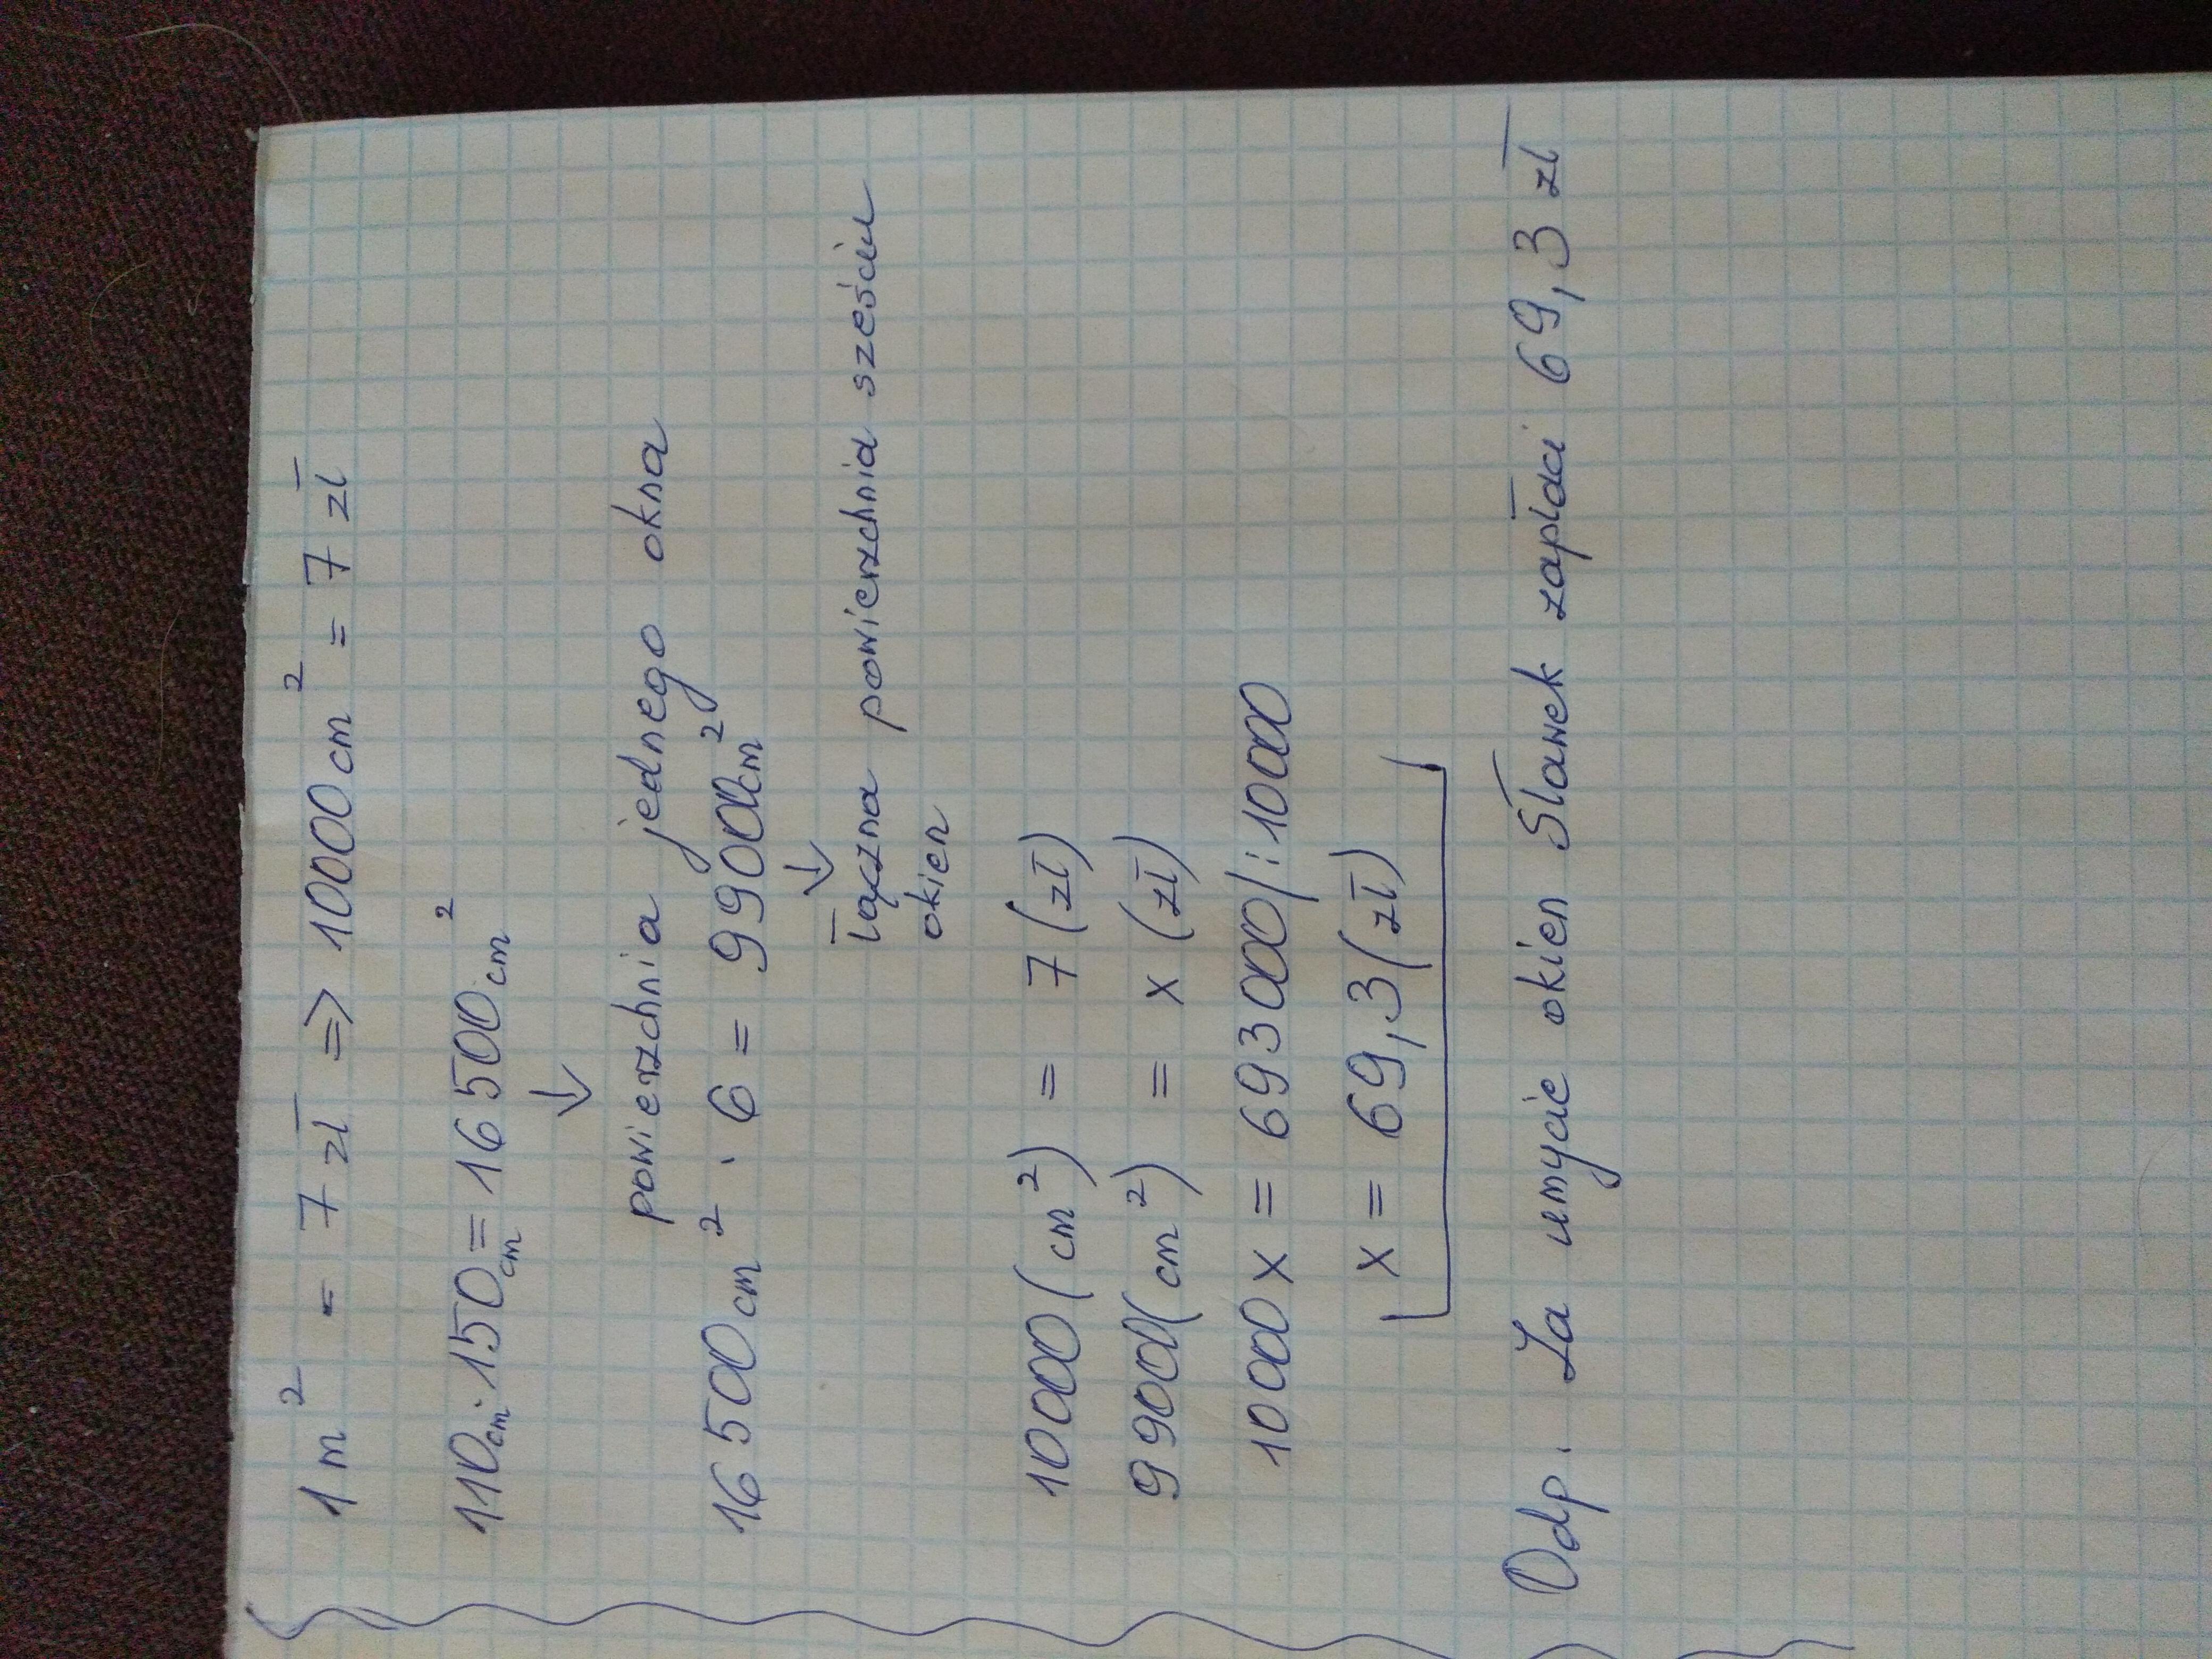 1 m² = 7 zł => 10000 cm² = 7 zł
110cm · 150cm = 16 500 cm²
↓
powierzchnia jednego okna
16 500 cm² · 6 = 99 000 cm²
↓
łączna powierzchnia sześciu
okien
10000 (cm²) = 7 (zł)
99000 (cm²) = x (zł)
10000 x = 693 000 /: 10000
x = 69,3 (zł)
Odp. Za umycie okien Sławek zapłaci 69,3 zł